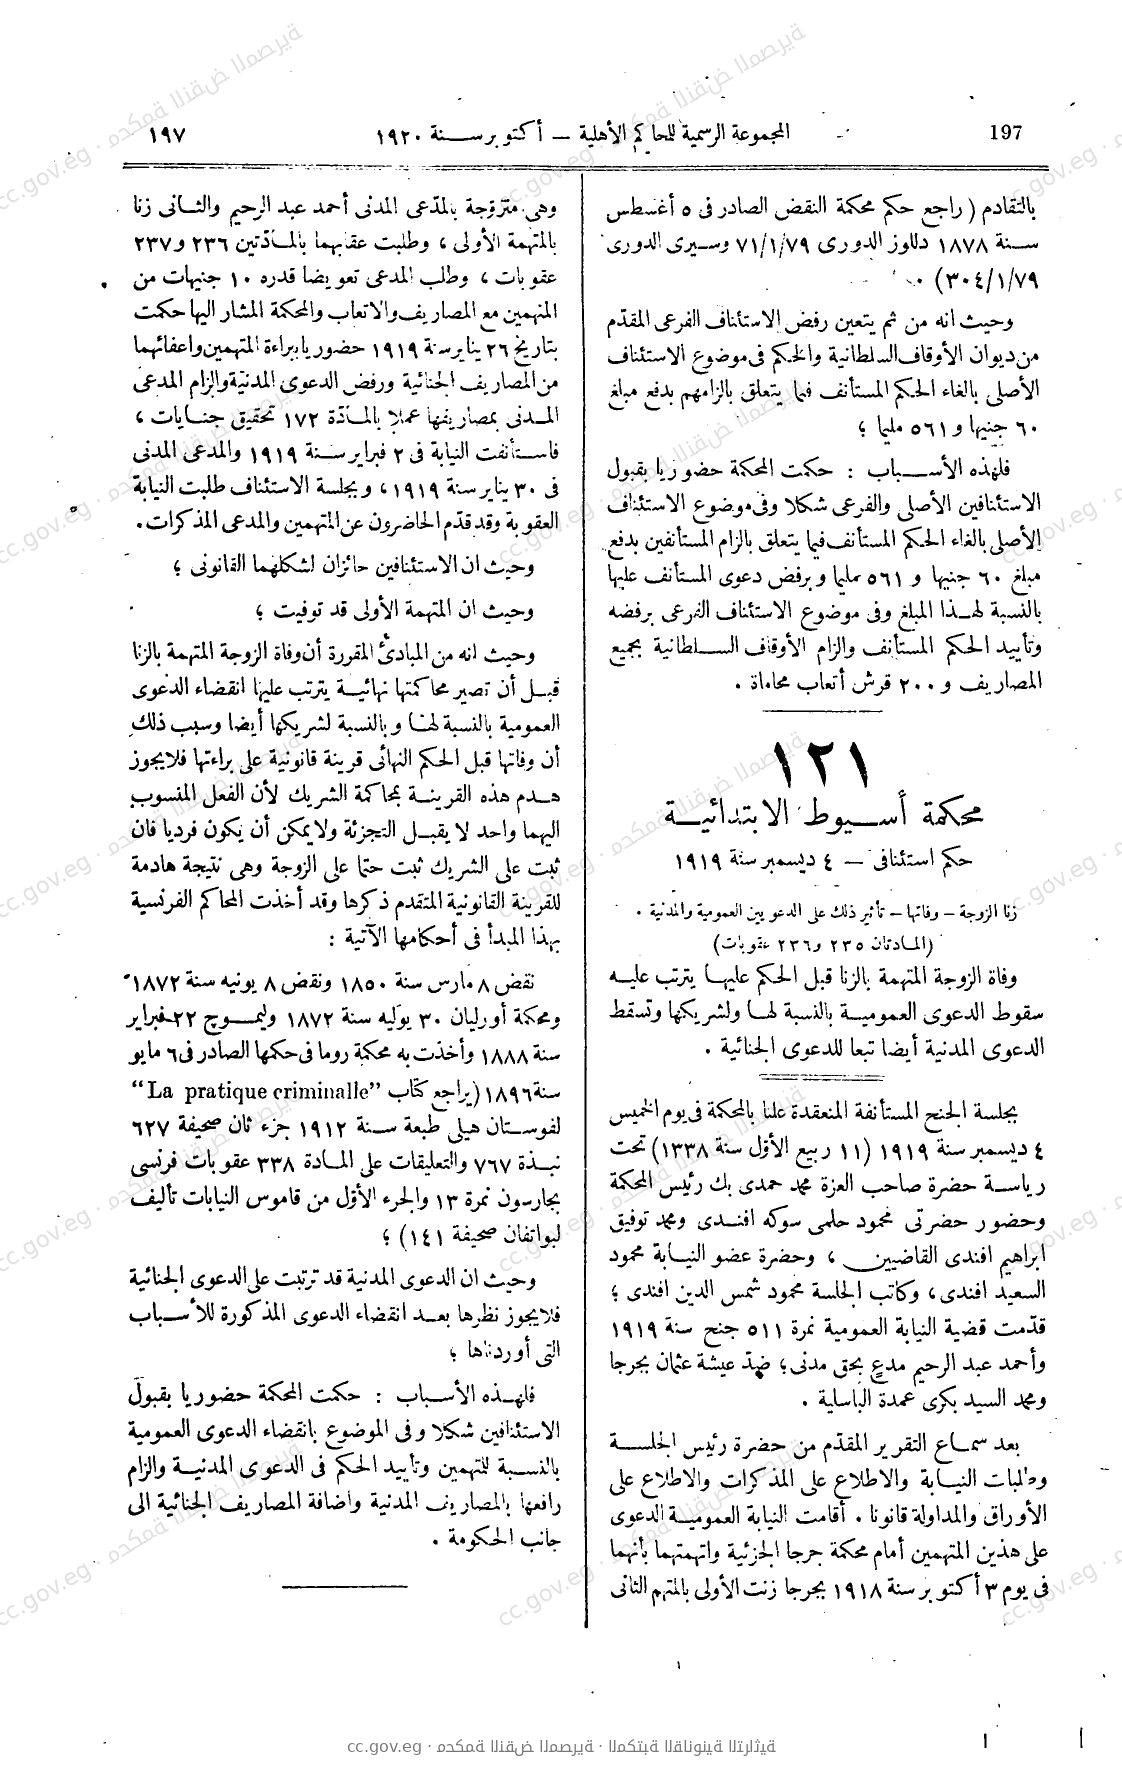 197
المجموعة الرسمية للمحاكم الأهلية – أكتوبر سنة ١٩٢٠
١٩٧
بالتقادم ( راجع حكم محكمة النقض الصادر فى ٥ أغسطس
سنة ١٨٧٨ دللوز الدورى ٧١/١/٧٩ وسيرى الدورى
٣٠٤/١/٧٩) .
وحيث انه من ثم يتعين رفض الاستئناف الفرعى المقدّم
من ديوان الأوقاف السلطانية والحكم فى موضوع الاستئناف
الأصلى بالغاء الحكم المستأنف فيما يتعلق بالزامهم بدفع مبلغ
٦٠ جنيها و ٥٦١ مليما ؛
فلهذه الأسباب : حكمت المحكمة حضوريا بقبول
الاستئنافين الأصلى والفرعى شكلا وفى موضوع الاستئناف
الأصلى بالغاء الحكم المستأنف فيما يتعلق بالزام المستأنفين بدفع
مبلغ ٦٠ جنيها و ٥٦١ مليما وبرفض دعوى المستأنف عليها
بالنسبة لهذا المبلغ وفى موضوع الاستئناف الفرعى برفضه
وتأييد الحكم المستأنف والزام الأوقاف السلطانية بجميع
المصاريف و ٢٠٠ قرش أتعاب محاماة .
١٢١
محكمة أسيوط الابتدائية
حكم استئنافى – ٤ ديسمبر سنة ١٩١٩
زنا الزوجة – وفاتها – تأثير ذلك على الدعويين العمومية والمدنية .
(المادتان ٢٣٥ و ٢٣٦ عقوبات)
وفاة الزوجة المتهمة بالزنا قبل الحكم عليها يترتب عليه
سقوط الدعوى العمومية بالنسبة لها ولشريكها وتسقط
الدعوى المدنية أيضا تبعا للدعوى الجنائية .
بجلسة الجنح المستأنفة المنعقدة علنا بالمحكمة فى يوم الخميس
٤ ديسمبر سنة ١٩١٩ (١١ ربيع الأوّل سنة ١٣٣٨) تحت
رياسة حضرة صاحب العزة محمد حمدى بك رئيس المحكمة
وحضور حضرتى محمود حلمى سوكه افندى ومحمد توفيق
ابراهيم افندى القاضيين ، وحضرة عضو النيابة محمود
السعيد افندى ، وكاتب الجلسة محمود شمس الدين افندى ؛
قدّمت قضية النيابة العمومية نمرة ٥١١ جنح سنة ١٩١٩
وأحمد عبد الرحيم مدع بحق مدنى ؛ ضدّ عيشة عثمان بجرجا
ومحمد السيد بكرى عمدة الباسلية .
بعد سماع التقرير المقدّم من حضرة رئيس الجلسة
وطلبات النيابة والاطلاع على المذكرات والاطلاع على
الأوراق والمداولة قانونا . أقامت النيابة العمومية الدعوى
على هذين المتهمين أمام محكمة جرجا الجزئية واتهمتهما بأنهما
فى يوم ٣ أكتوبر سنة ١٩١٨ بجرجا زنت الأولى بالمتهم الثانى
وهى متزوّجة بالمدّعى المدنى أحمد عبد الرحيم والثانى زنا
بالمتهمة الأولى ، وطلبت عقابهما بالمادّتين ٢٣٦ و ٢٣٧
عقوبات ، وطلب المدعى تعويضا قدره ١٠ جنيهات من
المتهمين مع المصاريف والاتعاب والمحكمة المشار اليها حكمت
بتاريخ ٢٦ يناير سنة ١٩١٩ حضوريا ببراءة المتهمين واعفائهما
من المصاريف الجنائية ورفض الدعوى المدنية والزام المدعى
المدنى بمصاريفها عملا بالمادّة ١٧٢ تحقيق جنايات ،
فاستأنفت النيابة فى ٢ فبراير سنة ١٩١٩ والمدعى المدنى
فى ٣٠ يناير سنة ١٩١٩ ، وبجلسة الاستئناف طلبت النيابة
العقوبة وقد قدّم الحاضرون عن المتهمين والمدعى المذكرات .
وحيث ان الاستئنافين حائزان لشكلهما القانونى ؛
وحيث ان المتهمة الأولى قد توفيت ؛
وحيث انه من المبادئ المقررة أن وفاة الزوجة المتهمة بالزنا
قبل أن تصير محاكمتها نهائية يترتب عليها انقضاء الدعوى
العمومية بالنسبة لها وبالنسبة لشريكها أيضا وسبب ذلك
أن وفاتها قبل الحكم النهائى قرينة قانونية على براءتها فلا يجوز
هدم هذه القرينة بمحاكمة الشريك لأن الفعل المنسوب
اليهما واحد لا يقبل التجزئة ولا يمكن أن يكون فرديا فان
ثبت على الشريك ثبت حتما على الزوجة وهى نتيجة هادمة
للقرينة القانونية المتقدم ذكرها وقد أخذت المحاكم الفرنسية
بهذا المبدأ فى أحكامها الآتية :
نقض ٨ مارس سنة ١٨٥٠ ونقض ٨ يونيه سنة ١٨٧٢
ومحكمة أورليان ٣٠ يوليه سنة ١٨٧٢ وليموج ٢٢ فبراير
سنة ١٨٨٨ وأخذت به محكمة روما فى حكمها الصادر فى ٦ مايو
سنة ١٨٩٦ (يراجع كتاب "La pratique criminalle"
لفوستان هيلى طبعة سنة ١٩١٢ جزء ثان صحيفة ٦٢٧
نبذة ٧٦٧ والتعليقات على المادة ٣٣٨ عقوبات فرنسى
بجارسون نمرة ١٣ والجزء الأوّل من قاموس النيابات تأليف
لبواتفان صحيفة ١٤١) ؛
وحيث ان الدعوى المدنية قد ترتبت على الدعوى الجنائية
فلا يجوز نظرها بعد انقضاء الدعوى المذكورة للأسباب
التى أوردناها ؛
فلهذه الأسباب : حكمت المحكمة حضوريا بقبول
الاستئنافين شكلا وفى الموضوع بانقضاء الدعوى العمومية
بالنسبة للمتهمين وتأييد الحكم فى الدعوى المدنية والزام
رافعها بالمصاريف المدنية واضافة المصاريف الجنائية الى
جانب الحكومة .
cc.gov.eg · محكمة النقض المصرية · المكتبة القانونية التراثية